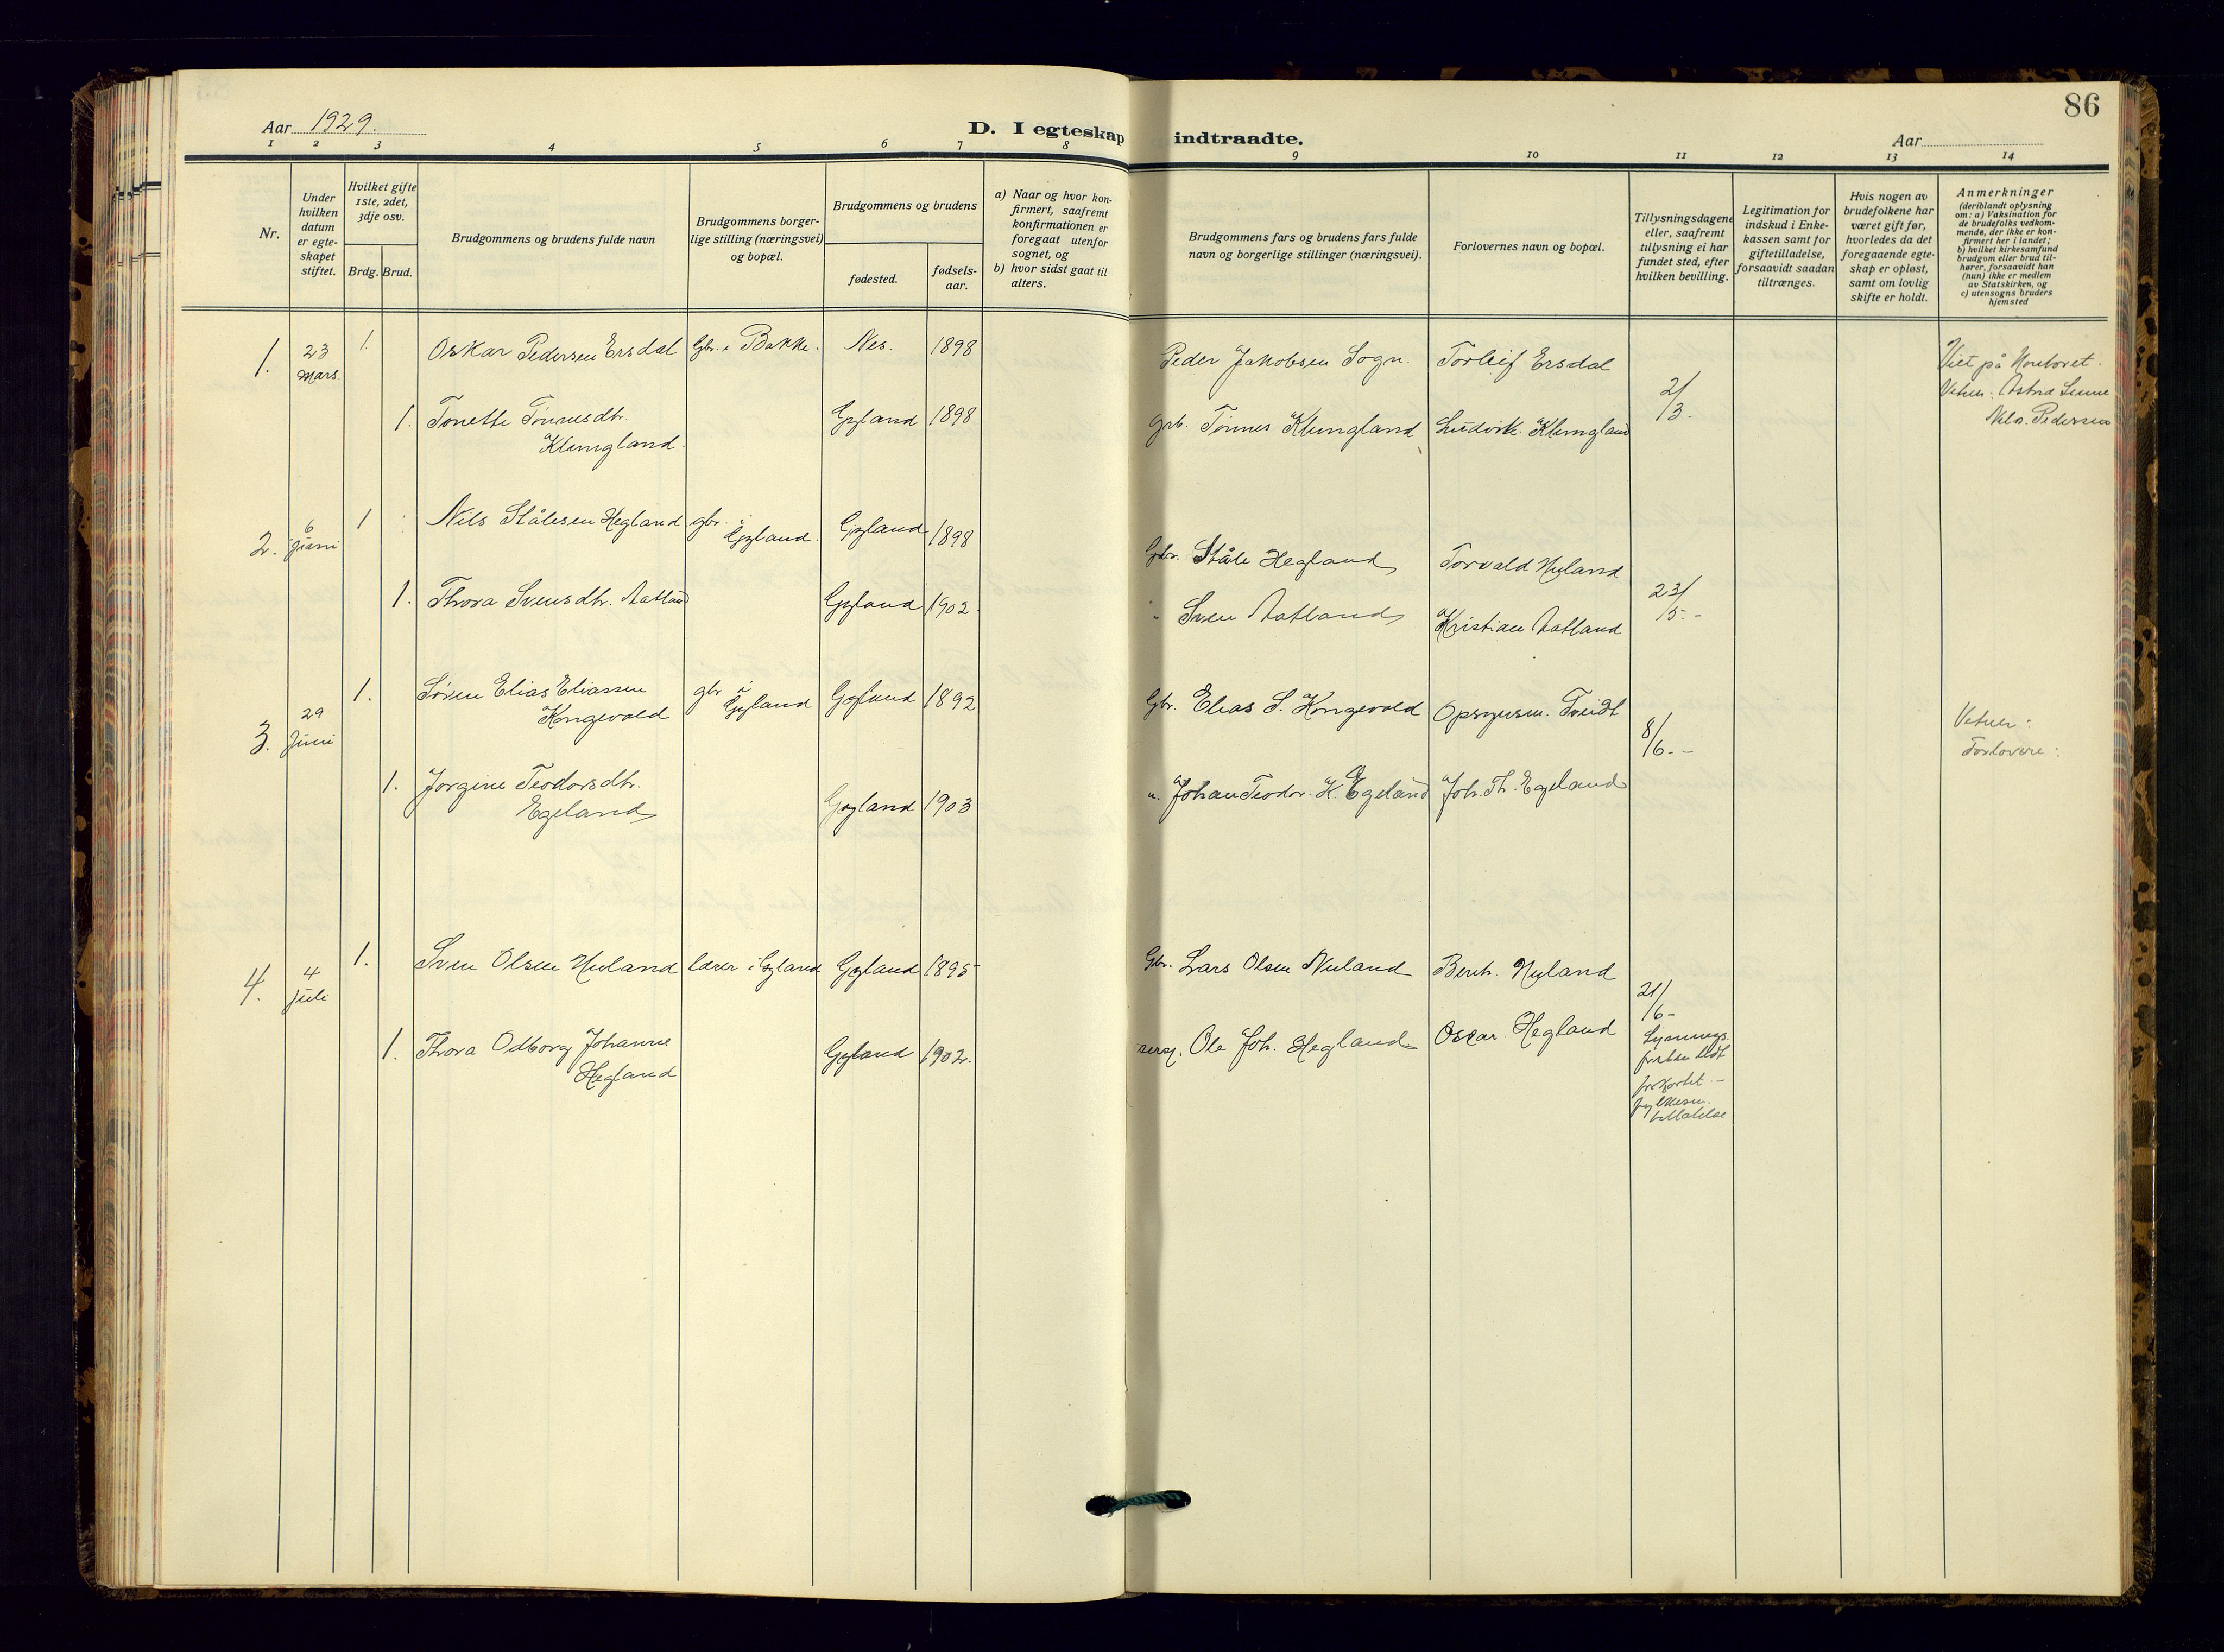 86
Aar 1929.
D. I egteskap indtraadte.
Aar
1 2 3 4 5 6 7 8 9 10 11 12 13 14
Nr.
Under
hvilken
datum
er egte-
skapet
stiftet.
Hvilket gifte
1ste, 2det,
3dje osv.
Brdg. Brud.
Brudgommens og brudens fulde navn
Brudgommens borger-
lige stilling (næringsvei)
og bopæl.
Brudgommens og brudens
fødested.
fødsels-
aar.
a) Naar og hvor kon-
firmert, saafremt
konfirmationen er
foregaat utenfor
sognet, og
b) hvor sidst gaat til
alters.
Brudgommens fars og brudens fars fulde
navn og borgerlige stillinger (næringsvei).
Forlovernes navn og bopæl.
Tillysningsdagene
eller, saafremt
tillysning ei har
fundet sted, efter
hvilken bevilling.
Legitimation for
indskud i Enke-
kassen samt for
giftetilladelse,
forsaavidt saadan
tiltrænges.
Hvis nogen av
brudefolkene har
været gift før,
hvorledes da det
foregaaende egte-
skap er opløst,
samt om lovlig
skifte er holdt.
Anmerkninger
(deriblandt oplysning
om: a) Vaksination for
de brudefolks vedkom-
mende, der ikke er kon-
firmert her i landet;
b) hvilket kirkesamfund
brudgom eller brud til-
hører, forsaavidt han
(hun) ikke er medlem
av Statskirken, og
c) utensogns bruders
hjemsted
1. 23 Mars. 1. Oskar Pedersen Ersdal Gbr. i Bakke. Nes. 1898 Peder Jakobsen Sogn. Torleif Ersdal
2/3.
Viet på
Vitner: Astrid
Pedersen
1. Tonette Tønnesdtr.
Klungland. Gyland 1898 grb. Tønnes Klungland Ludvik. Klungland
2. 6 Juni 1 Nils Stålesen Hegland gbr. i
Gyland. Gyland 1898 Gbr. Ståle Hegland Torvald Nuland
23/5.-
1. Thora Svensdtr. Aatland Gyland 1902. " Sven Aatland Kristian Aatland
3. 29 Juni 1. Søren Elias Eliassen
Kongevold gbr i
Gyland Gyland 1892 Gbr. Elias S. Kongevold Opsynsm. Tveidt
8/6.-
Vitner:
Forlovere:
1. Jorgine Teodorsdtr.
Egeland Gyland 1903 ". Johan Teodor. H. Egeland Joh. Th. Egeland
4. 4 Juli 1. Sven Olsen Nuland lærer i Gyland Gyland 1895 Gbr. Lars Olsen Nuland Bernh. Nuland
21/6-
Lysnings
fristen blit
forkortet -
fylkesm.
tillatelse
1. Thora Odborg Johanne
Hegland Gyland 1902. Ole Joh. Hegland Oscar Hegland